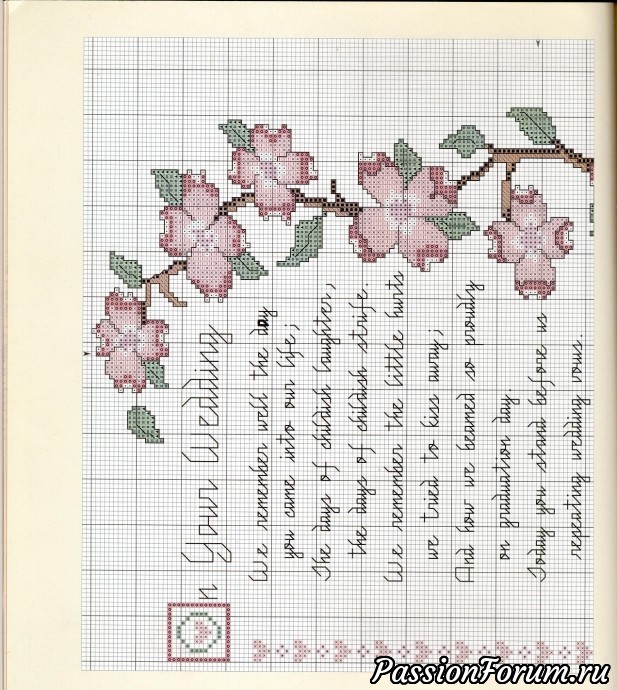 On Your Wedding
We remember well the day
you came into our life;
The days of childish laughter,
the days of childish strife.
We remember the little hurts
we tried to kiss away;
And how we beamed so proudly
on graduation day.
Today you stand before us
repeating wedding vows.
PassionForum.ru